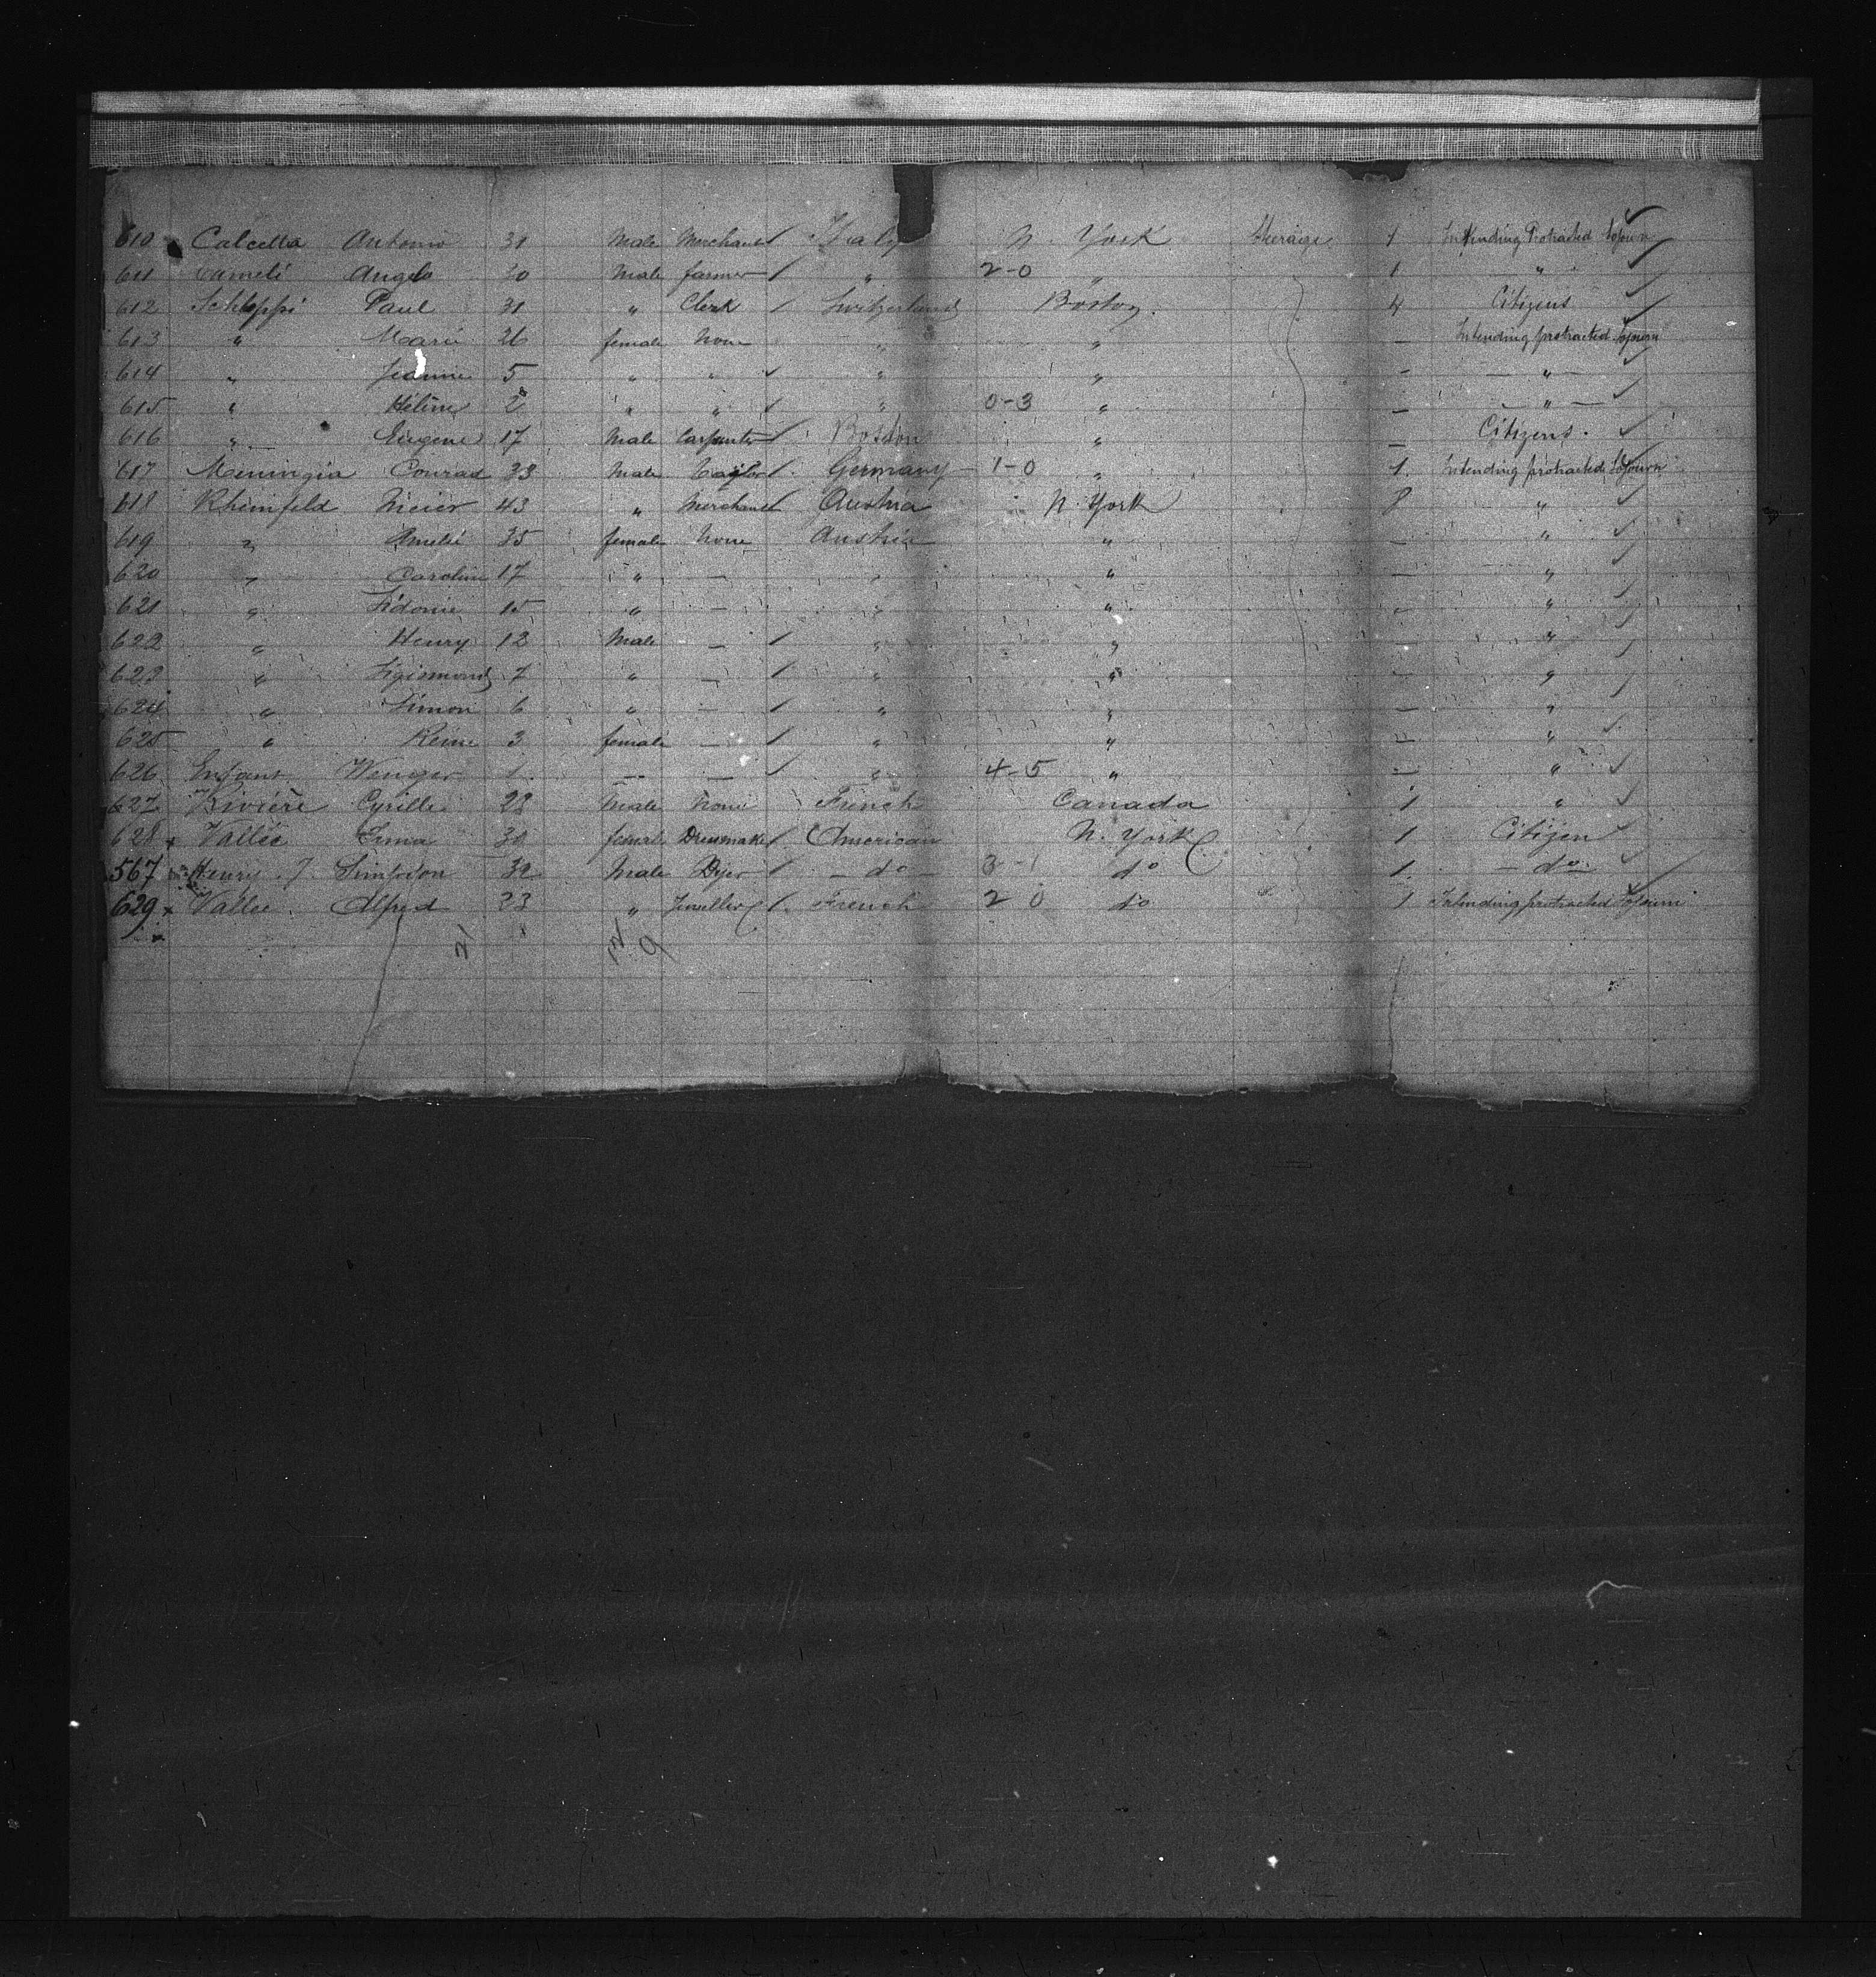 610 Calcetta Antonio 31 Male Merchant Italy N. York Steerage 1 Intending Protracted Sojourn
611 Angelo 30 Male farmer " 2-0 " 1 "
612 Schlappi Paul 31 " Clerk Switzerland Boston. 4 Citizens
613 " Marie 26 female None " " - Intending protracted Sojourn
614 " Jeanne 5 " " " " - "
615 " Hélène 2 " " " 0-3 " - "
616 " Eugene 17 Male Carpenter Boston " - Citizens.
617 Meningia Conrad 33 Male Taylor Germany 1-0 " 1. Intending protracted Sojourn
618 Rheinfeld Meier 43 " Merchant Austria N. York 8 "
619 " Amelie 35 female None Austria " - "
620 " Caroline 17 " - " " - "
621 " Sidonie 15 " - " " - "
622 " Henry 12 Male - " " - "
623 " Sigismond 7 " - " " - "
624 " Simon 6 " - " " - "
625 " Reine 3 female - " " - "
626 Enfant Wenger 1. - - " 4-5 " - "
627 Rivière Cyrille 28 Male None French Canada 1 "
628 x Vallée 30 female Dressmaker American N. York 1. Citizen
567 Henry J Simpson 32 Male Dyer - do - 3-1 do 1. - do -
629 x Vallée. Alfred 33 " Jeweller French 2 0 do 1 Intending protracted Sojourn
21 12 9